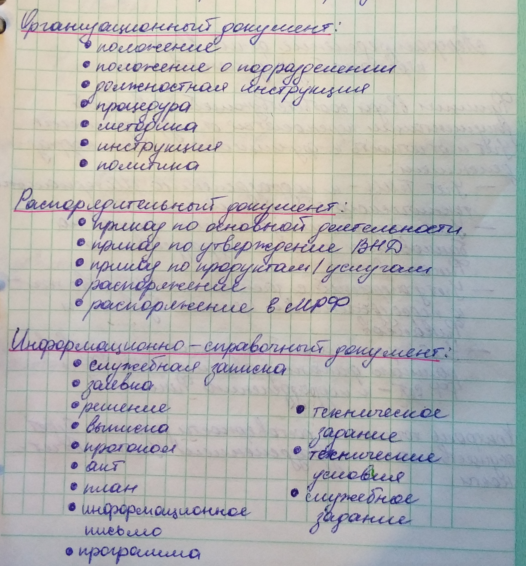 Организационный документ:
• положение
• положение о подразделении
• должностная инструкция
• процедура
• методика
• инструкция
• политика
Распорядительный документ:
• приказ по основной деятельности
• приказ по утверждение ВНД
• приказ по продуктам/услугам
• распоряжение
• распоряжение в МРФ
Информационно-справочный документ:
• служебная записка
• заявка
• решение
• выписка
• протокол
• акт
• план
• информационное
письмо
• программа
• техническое
задание
• технические
условия
• служебное
задание